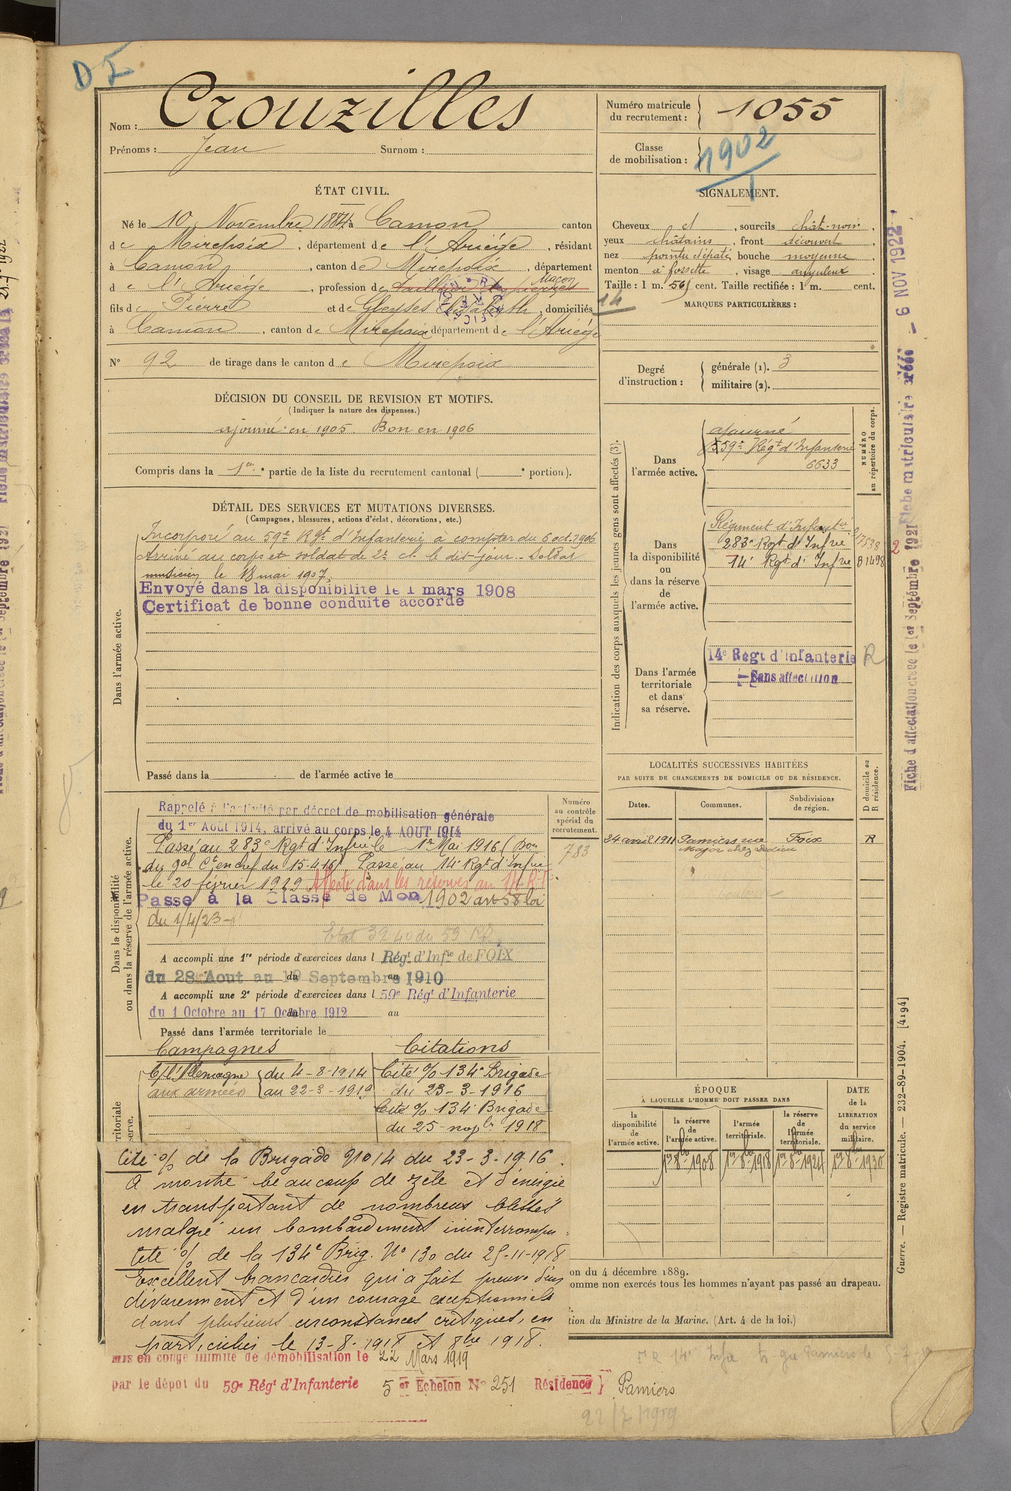 D I
Nom : Crouzilles
Prénoms : Jean Surnom :
Numéro matricule du recrutement : 1055
Classe de mobilisation : 1902
ÉTAT CIVIL.
Né le 10 Novembre 1884 à Camon canton
de Mirepoix, département de l'Ariège, résidant
à Camon, canton de Mirepoix, département
de l'Ariège, profession de Maçon
fils de Pierre et de Elisabeth, domiciliés
à Camon, canton de Mirepoix département de l'Ariège
N° 92 de tirage dans le canton de Mirepoix
SIGNALEMENT.
Cheveux et, sourcils chât-noir,
yeux châtains, front découvert,
nez pointu, bouche moyenne,
menton à fossette, visage anguleux
Taille : 1 m. 56 cent. Taille rectifiée : 1 m. cent.
14
MARQUES PARTICULIÈRES :
Degré d'instruction : générale (1). 3
militaire (2).
DÉCISION DU CONSEIL DE REVISION ET MOTIFS.
(Indiquer la nature des dispenses.)
ajourné en 1905. Bon en 1906
Compris dans la 1re partie de la liste du recrutement cantonal ( portion).
DÉTAIL DES SERVICES ET MUTATIONS DIVERSES.
(Campagnes, blessures, actions d'éclat, décorations, etc.)
Dans l'armée active.
Incorporé au 59e Rgt d'Infanterie à compter du 6 oct. 1906
Arrivé au corps et soldat de 2e cl. le dit jour. Soldat
musicien le 18 mai 1907.
Envoyé dans la disponibilité le 1 mars 1908
Certificat de bonne conduite accordé
Passé dans la de l'armée active le
Indication des corps auxquels les jeunes gens sont affectés (3).
NUMÉRO au répertoire du corps.
Dans l'armée active.
ajourné
59e Régt d'Infanterie
6633
Dans la disponibilité ou dans la réserve de l'armée active.
Régiment d'Infanterie
283e Rgt d'Infrie
14e Rgt d'Infrie B1498
Dans l'armée territoriale et dans sa réserve.
14e Régt d'Infanterie R
Sans affectation
LOCALITÉS SUCCESSIVES HABITÉES
PAR SUITE DE CHANGEMENTS DE DOMICILE OU DE RÉSIDENCE.
Dates. Communes. Subdivisions de région. D domicile ou R résidence.
24 avril 1911 Pamiers rue Major chez Foix R
Dans la disponibilité ou dans la réserve de l'armée active.
Numéro au contrôle spécial du recrutement.
783
Rappelé à l'activité par décret de mobilisation générale
du 1er Août 1914, arrivé au corps le 4 AOUT 1914
Passé au 283e Rgt d'Infrie le 1er Mai 1916 (Bon
du gal Ct en chef du 15-4-16) Passé au 14e Rgt d'Infrie
le 20 février 1919 Affecté dans les réserves au 14e R.I
Passé à la Classe de Mon 1902 art 58 loi
du 1/4/23
A accompli une 1re période d'exercices dans l Régt d'Infrie de FOIX
du 28 Aout au 19 Septembre 1910
A accompli une 2e période d'exercices dans l 59e Régt d'Infanterie
du 1 Octobre au 17 Octobre 1912 au
Passé dans l'armée territoriale le
Campagnes Citations
C/ l'Allemagne du 4-8-1914
aux armées au 22-3-1919
Cité % 134e Brigade
du 23-3-1916
Cité % 134e Brigade
du 25 novbre 1918
ÉPOQUE
À LAQUELLE L'HOMME DOIT PASSER DANS
la disponibilité de l'armée active.
la réserve de l'armée active.
l'armée territoriale.
la réserve de l'armée territoriale.
DATE de la LIBÉRATION du service militaire.
Cité % de la Brigade N° 14 du 23-3-1916.
A montré beaucoup de zèle et d'énergie
en transportant de nombreux blessés
malgré un bombardement ininterrompu.
Cité % de la 134e Brig. N° 130 du 25-11-1918
Excellent brancardier qui a fait preuve d'un
dévouement et d'un courage exceptionnels
dans plusieurs circonstances critiques, en
particulier le 13-8-1918 et 8bre 1918.
on du 4 décembre 1889.
omme non exercés tous les hommes n'ayant pas passé au drapeau.
tion du Ministre de la Marine. (Art. 4 de la loi.)
mis en congé illimité de démobilisation le 22 Mars 1919
par le dépôt du 59e Régt d'Infanterie 5 er Echelon N° 251 Résidence } Pamiers
22/7/1919
Guerre. — Registre matricule. — 232-89-1904. [4194]
Fiche d'affectation créée le 1er Septembre 1921
Fiche matriculaire créée — 6 NOV 1922